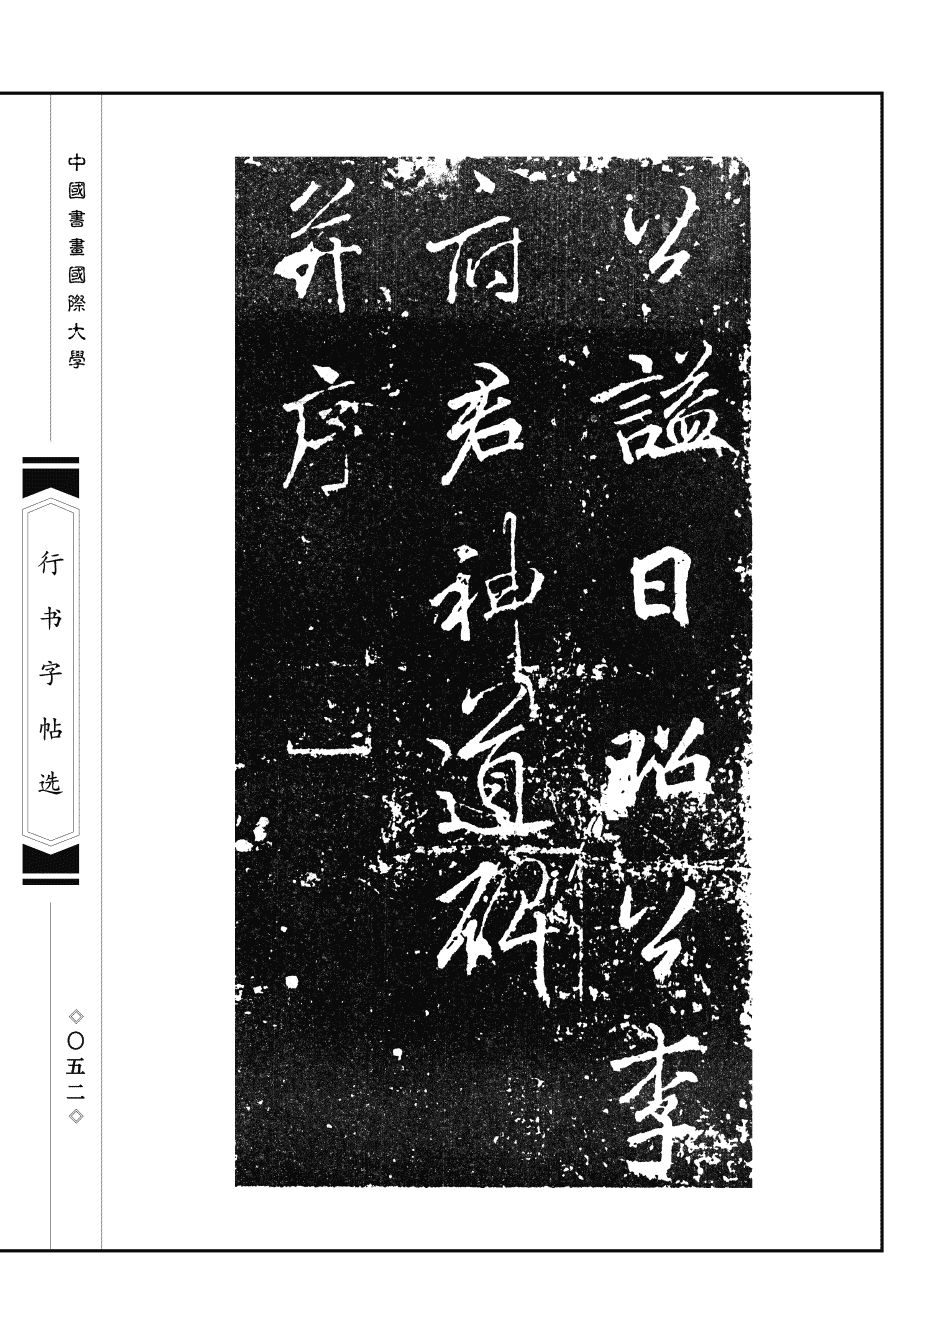 公謚曰昭公李
府君神道碑
并序
中國書畫國際大學
行书字帖选
〇五二